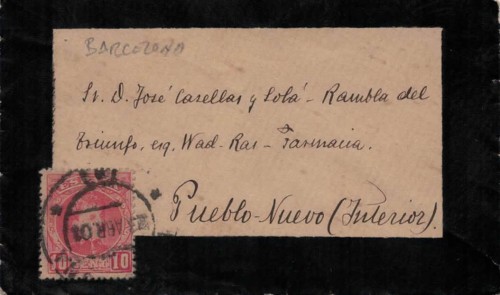 BARCELONA
Sr. D. José Casellas y Solá - Rambla del
Triunfo, esq. Wad-Ras - Farmacia.
Pueblo-Nuevo (Interior).
ABR.01
10 10